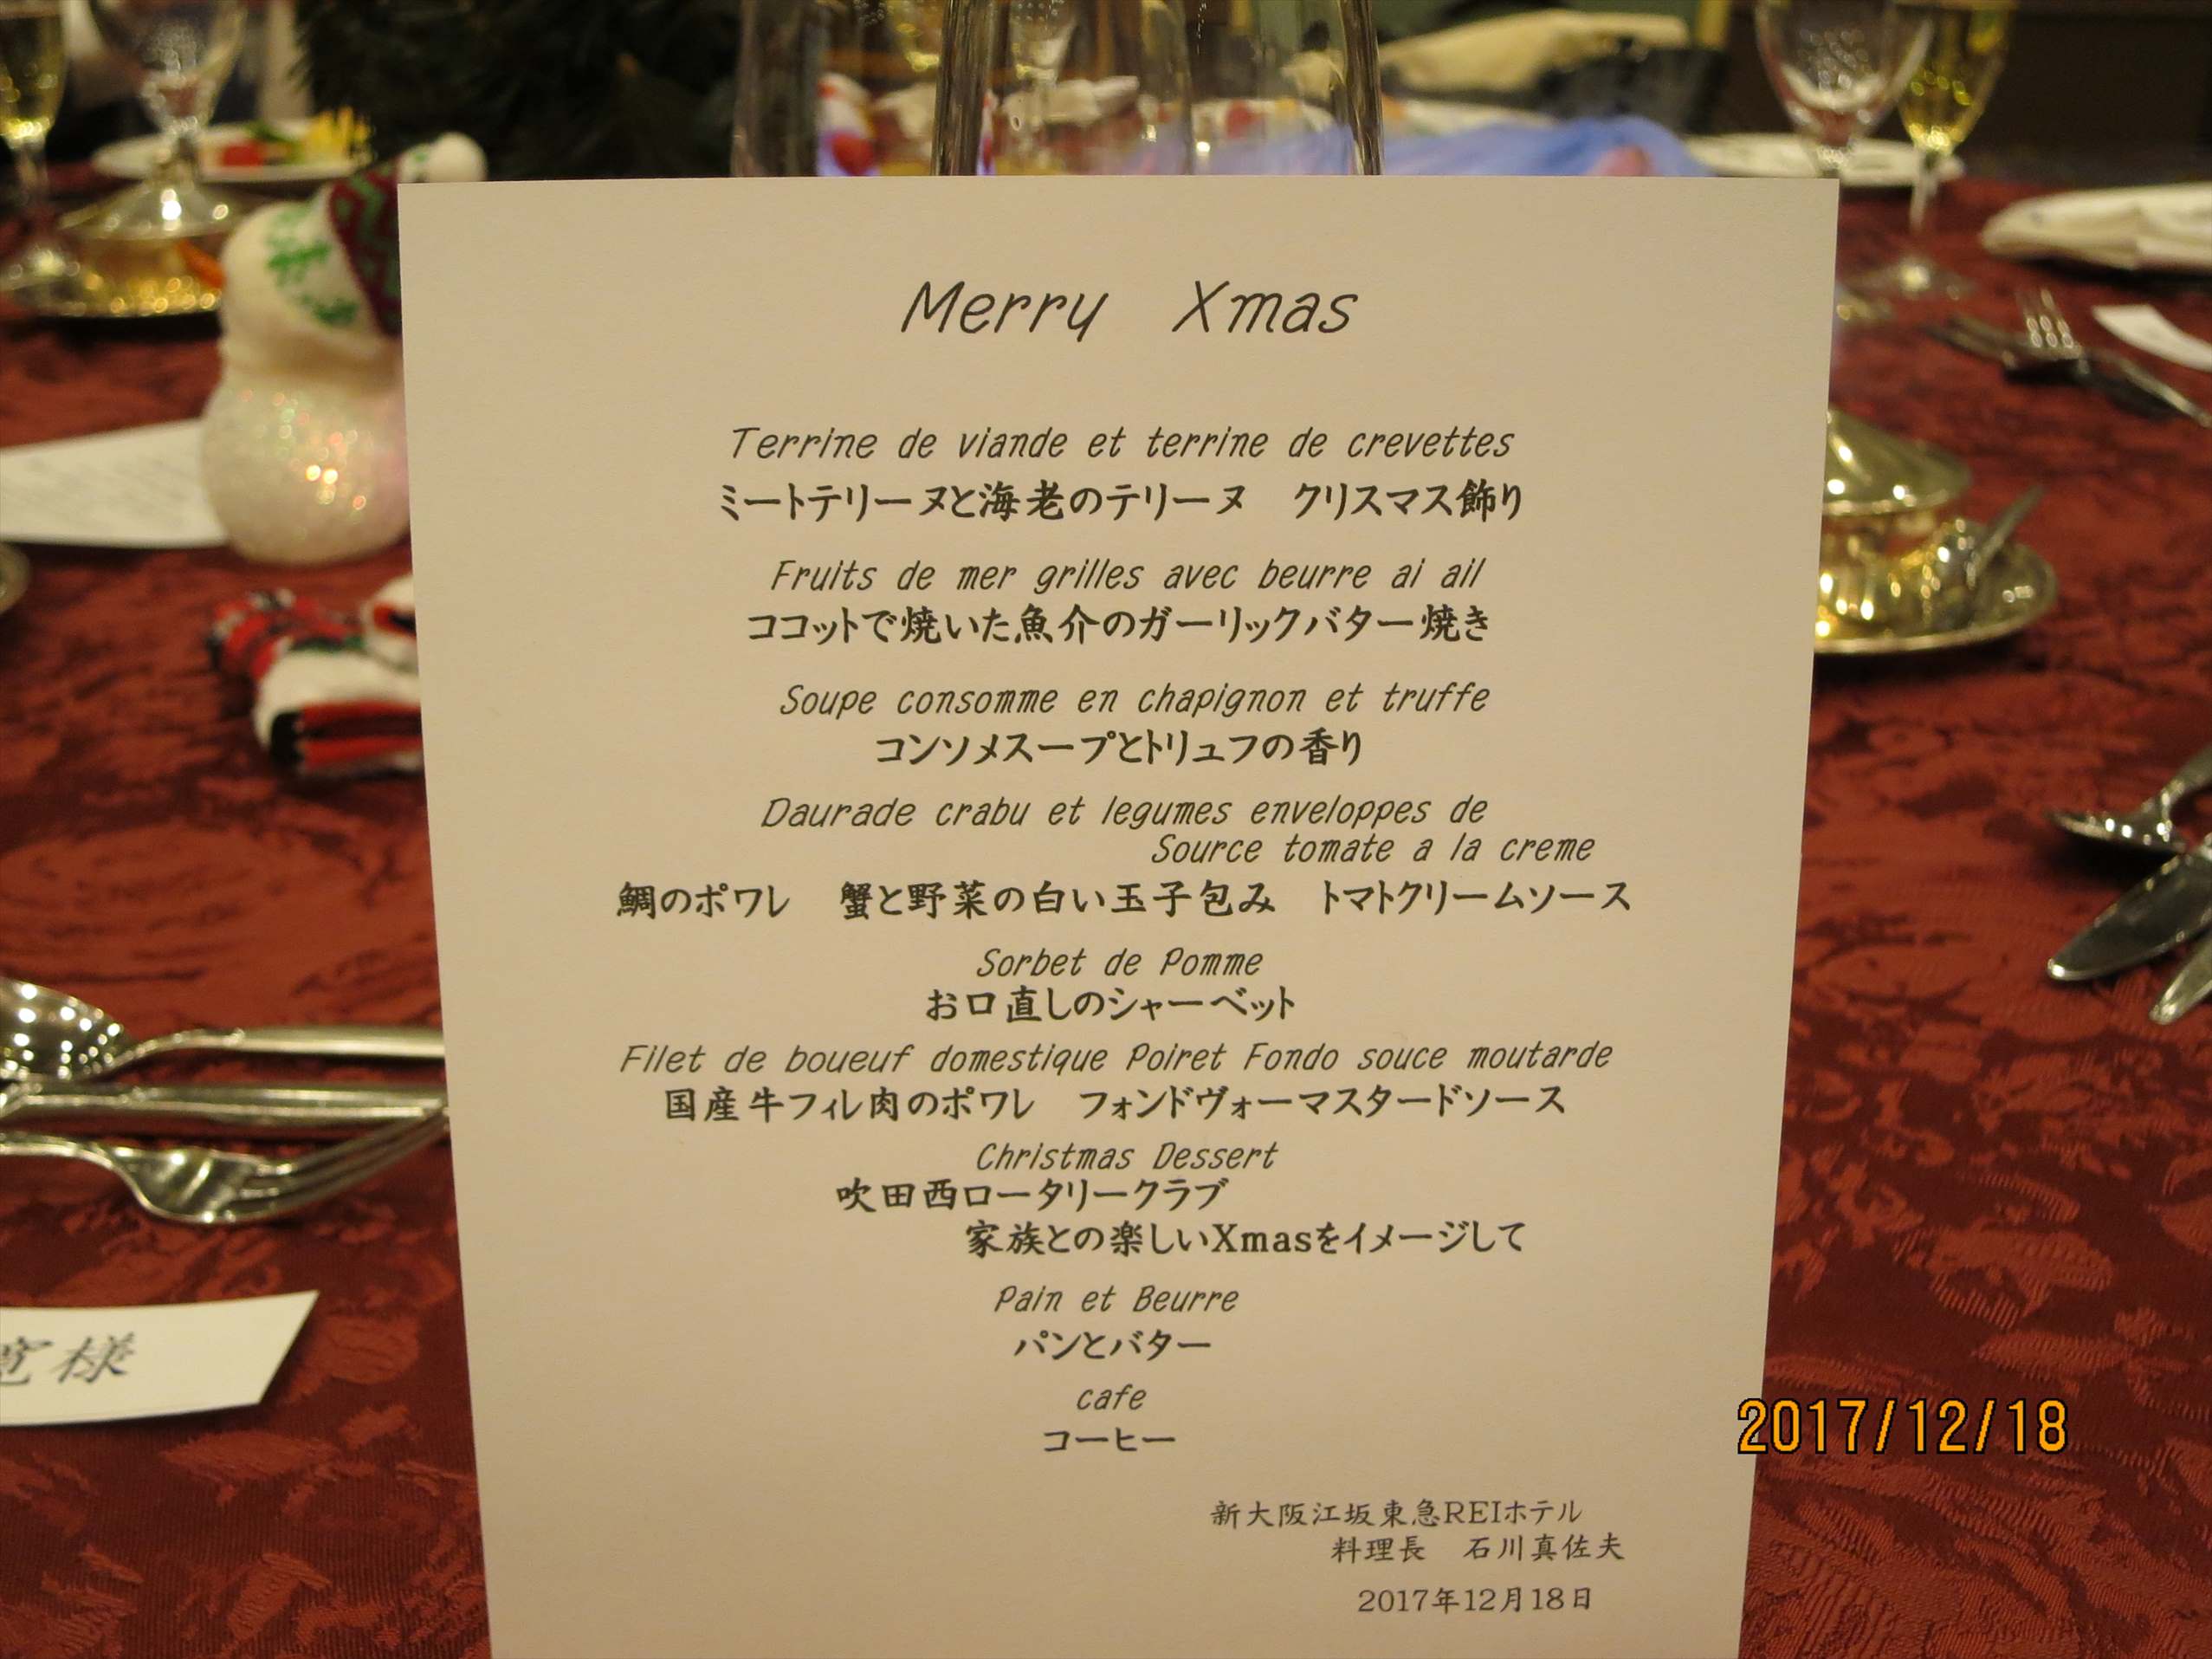 Merry Xmas
Terrine de viande et terrine de crevettes
ミートテリーヌと海老のテリーヌ　クリスマス飾り
Fruits de mer grilles avec beurre ai ail
ココットで焼いた魚介のガーリックバター焼き
Soupe consomme en chapignon et truffe
コンソメスープとトリュフの香り
Daurade crabu et legumes enveloppes de
Source tomate a la creme
鯛のポワレ　蟹と野菜の白い玉子包み　トマトクリームソース
Sorbet de Pomme
お口直しのシャーベット
Filet de boueuf domestique Poiret Fondo souce moutarde
国産牛フィレ肉のポワレ　フォンドヴォーマスタードソース
Christmas Dessert
吹田西ロータリークラブ
家族との楽しいXmasをイメージして
Pain et Beurre
パンとバター
cafe
コーヒー
新大阪江坂東急REIホテル
料理長　石川真佐夫
2017年12月18日
寛様
2017/12/18